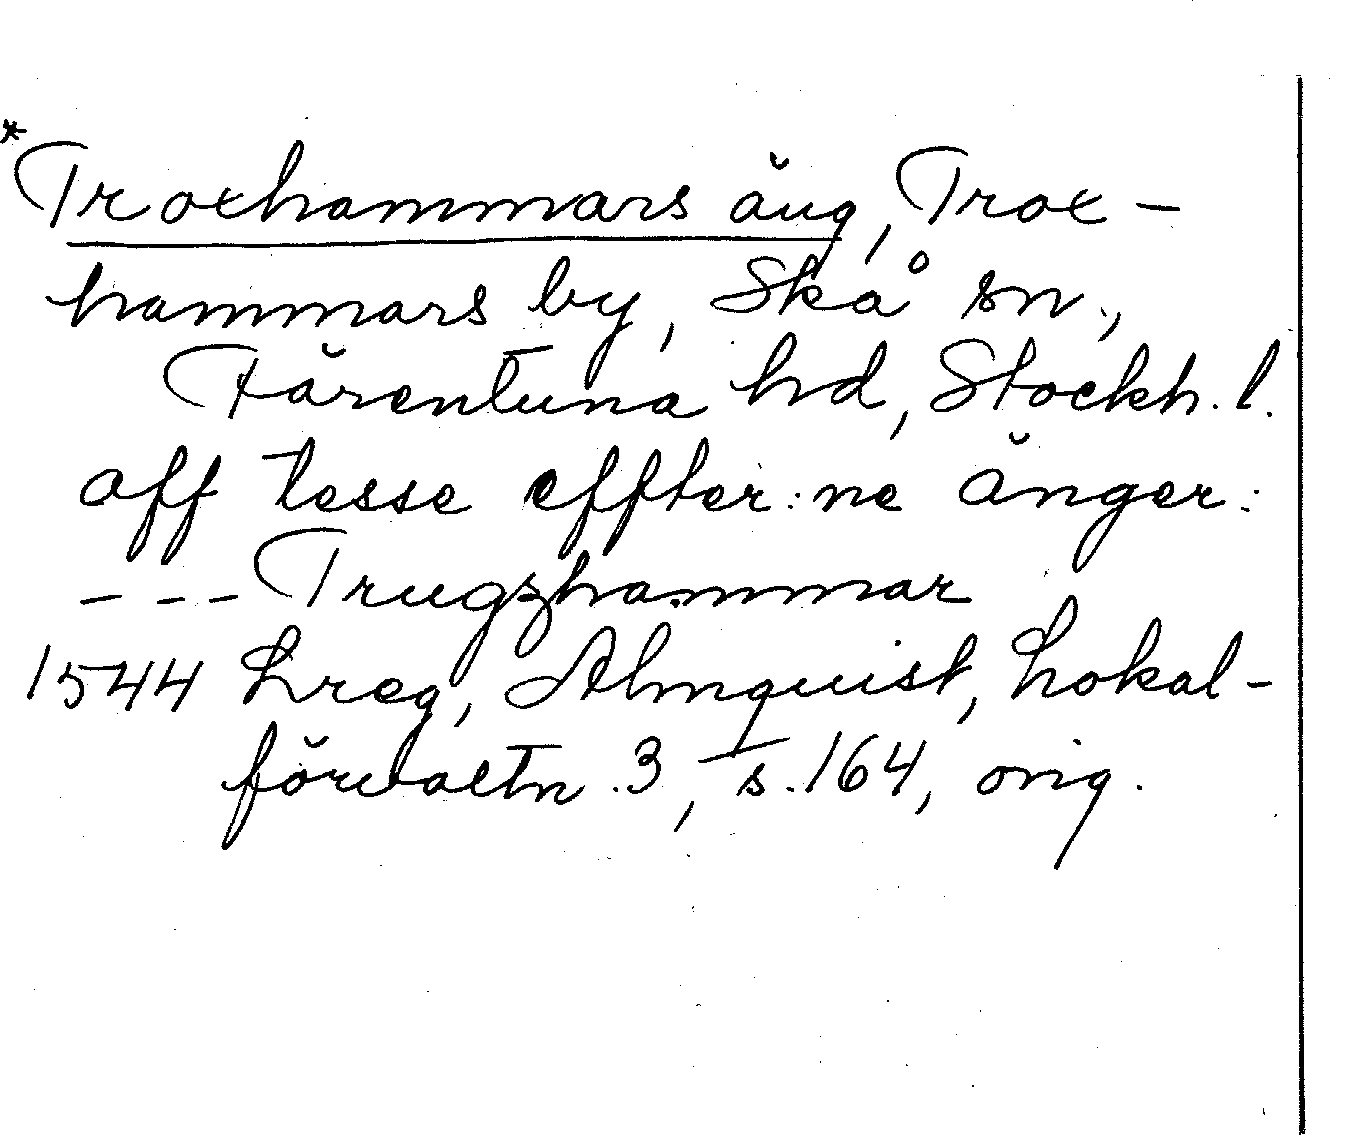 *Troxhammars äng, Trox-
hammars by, Skå sn.,
Färentuna hd, Stockh. l.
aff tesse effter:ne änger:
--- Trugzhammar
1544 Lreg, Almquist, Lokal-
förvaltn. 3, s. 164, orig.